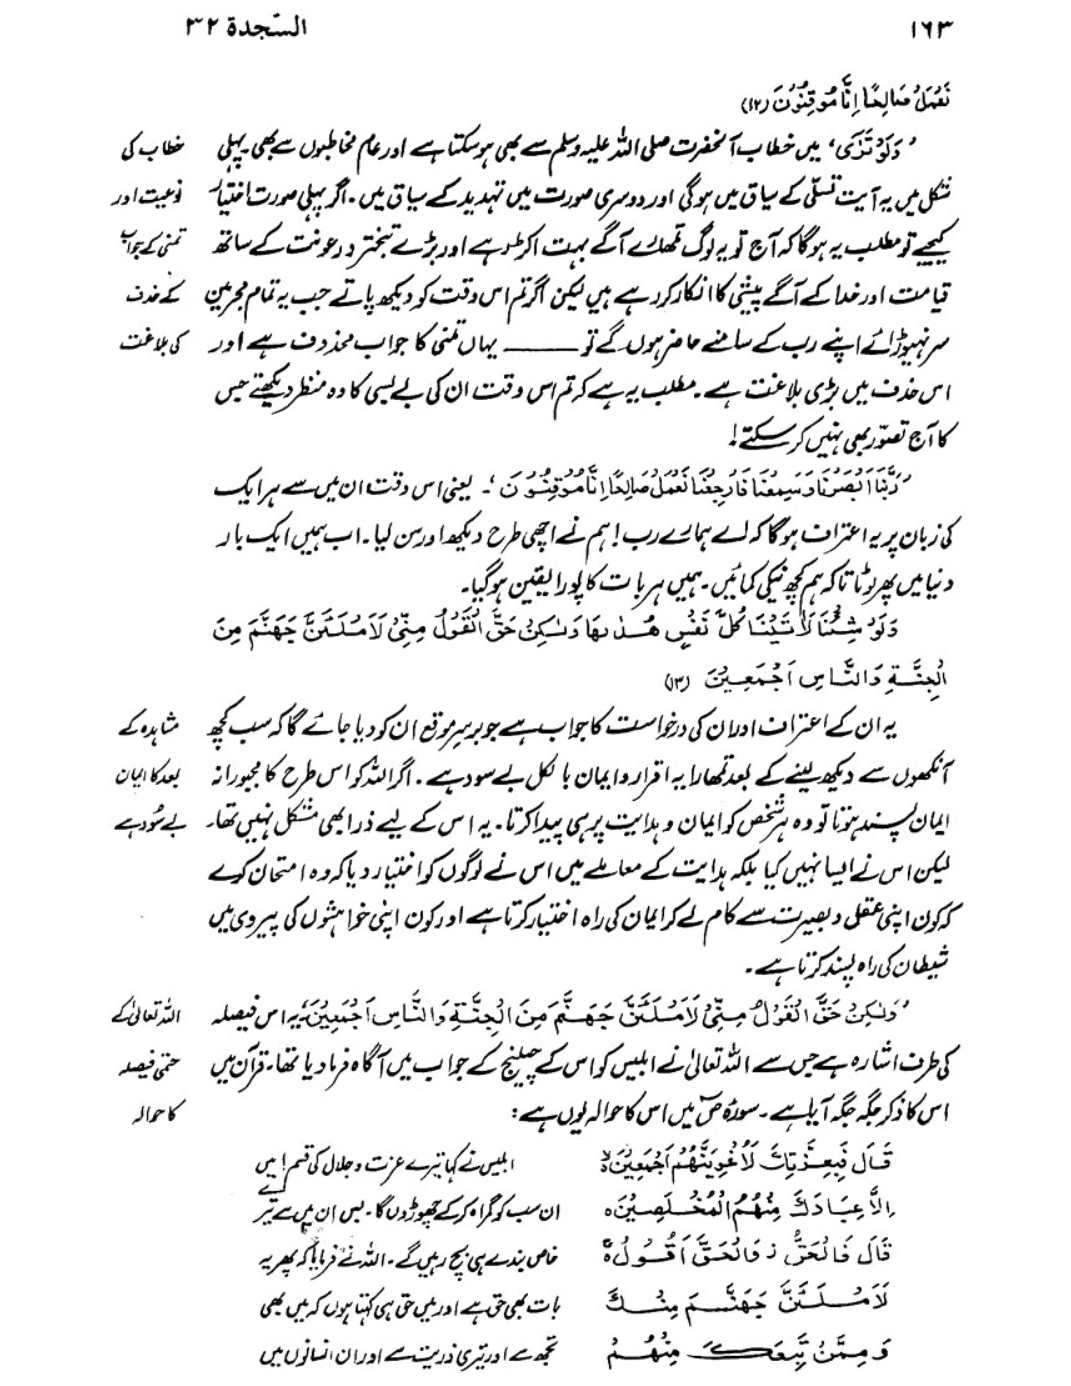 ۱۶۳
السّجدة ۳۲
نَعْمَلْ صَالِحًا اِنَّا مُوْقِنُوْنَ (۱۲)
’وَلَوْ تَرٰٓى‘ میں خطاب آنحضرت صلی اللہ علیہ وسلم سے بھی ہوسکتا ہے اور عام مخاطبوں سے بھی۔ پہلی
خطاب کی
شکل میں یہ آیت تسلّی کے سیاق میں ہوگی اور دوسری صورت میں تہدید کے سیاق میں۔ اگر پہلی صورت اختیار
نوعیت اور
کیجیے تو مطلب یہ ہوگا کہ آج تو یہ لوگ تمھارے آگے بہت اکڑ رہے اور بڑے تبختر و رعونت کے ساتھ
تمنی کے جواب
قیامت اور خدا کے آگے پیشی کا انکار کر رہے ہیں لیکن اگر تم اس وقت کو دیکھ پاتے جب یہ تمام مجرمین
کے حذف
سر نہیوڑائے اپنے رب کے سامنے حاضر ہوں گے تو ــــــــ یہاں تمنی کا جواب محذوف ہے اور
کی بلاغت
اس حذف میں بڑی بلاغت ہے۔ مطلب یہ ہے کہ تم اس وقت ان کی بے بسی کا وہ منظر دیکھتے جس
کا آج تصوّر بھی نہیں کر سکتے!
’رَبَّنَآ اَبْصَرْنَا وَسَمِعْنَا فَارْجِعْنَا نَعْمَلْ صَالِحًا اِنَّا مُوْقِنُوْنَ‘۔ یعنی اس وقت ان میں سے ہر ایک
کی زبان پر یہ اعتراف ہوگا کہ اے ہمارے رب! ہم نے اچھی طرح دیکھ اور سن لیا۔ اب ہمیں ایک بار
دنیا میں پھر لوٹا تا کہ ہم کچھ نیکی کمائیں۔ ہمیں ہر بات کا پورا یقین ہوگیا۔
وَلَوْ شِئْنَا لَاٰتَيْنَا كُلَّ نَفْسٍ هُدٰىهَا وَلٰكِنْ حَقَّ الْقَوْلُ مِنِّىْ لَاَمْلَـَٔنَّ جَهَنَّمَ مِنَ
الْجِنَّةِ وَالنَّاسِ اَجْمَعِيْنَ (۱۳)
یہ ان کے اعتراف اور ان کی درخواست کا جواب ہے جو برسر موقع ان کو دیا جائے گا کہ سب کچھ
مشاہدہ کے
آنکھوں سے دیکھ لینے کے بعد تمھارا یہ اقرار و ایمان بالکل بے سود ہے۔ اگر اللہ کو اس طرح کا مجبورانہ
بعد کا ایمان
ایمان پسند ہوتا تو وہ ہر شخص کو ایمان و ہدایت پر ہی پیدا کرتا۔ یہ اس کے لیے ذرا بھی مشکل نہیں تھا۔
بے سُود ہے
لیکن اس نے ایسا نہیں کیا بلکہ ہدایت کے معاملے میں اس نے لوگوں کو اختیار دیا کہ وہ امتحان کرے
کہ کون اپنی عقل و بصیرت سے کام لے کر ایمان کی راہ اختیار کرتا ہے اور کون اپنی خواہشوں کی پیروی میں
شیطان کی راہ پسند کرتا ہے۔
’وَلٰكِنْ حَقَّ الْقَوْلُ مِنِّىْ لَاَمْلَـَٔنَّ جَهَنَّمَ مِنَ الْجِنَّةِ وَالنَّاسِ اَجْمَعِيْنَ‘؛ یہ اس فیصلہ
اللہ تعالیٰ کے
کی طرف اشارہ ہے جس سے اللہ تعالیٰ نے ابلیس کو اس کے چیلنج کے جواب میں آگاہ فرما دیا تھا۔ قرآن میں
حتمی فیصلہ
اس کا ذکر جگہ جگہ آیا ہے۔ سورۂ صٓ میں اس کا حوالہ یوں ہے:
کا حوالہ
قَالَ فَبِعِزَّتِكَ لَاُغْوِيَنَّهُمْ اَجْمَعِيْنَ لا
ابلیس نے کہا تیرے عزت و جلال کی قسم! میں
اِلَّا عِبَادَكَ مِنْهُمُ الْمُخْلَصِيْنَ ہ
ان سب کو گمراہ کر کے چھوڑوں گا۔ بس ان میں سے تیرے
قَالَ فَالْحَقُّ ز وَالْحَقَّ اَقُوْلُ ہ
خاص بندے ہی بچ رہیں گے۔ اللہ نے فرمایا کہ پھر یہ
لَاَمْلَـَٔنَّ جَهَنَّمَ مِنْكَ
بات بھی حق ہے اور میں حق ہی کہتا ہوں کہ میں بھی
وَ مِمَّنْ تَبِعَكَ مِنْهُمْ
تجھ سے اور تیری ذریت سے اور ان انسانوں میں